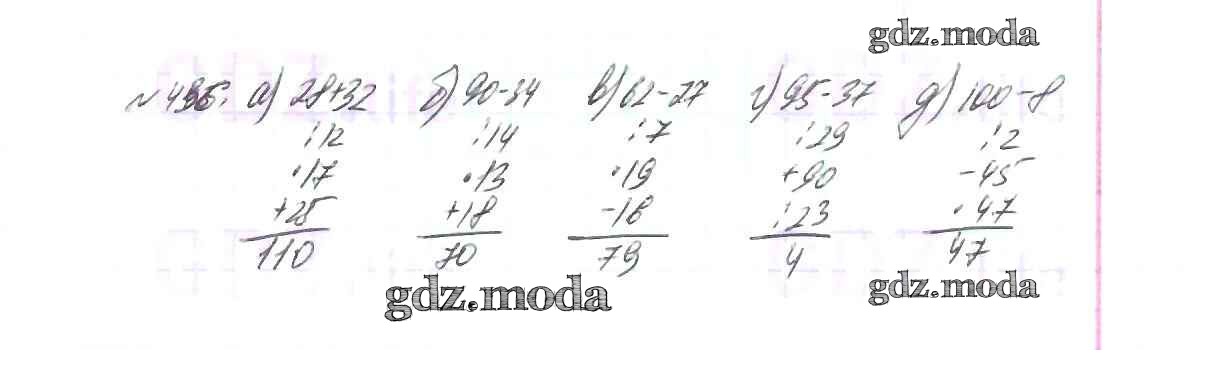 gdz.moda
№ 495. а) 28+32 б) 90-34 в) 62-27 г) 95-37 д) 100-8
:12 :14 :7 :29 :2
·17 ·13 ·19 +90 -45
+25 +18 -16 :23 ·47
110 70 79 4 47
gdz.moda gdz.moda